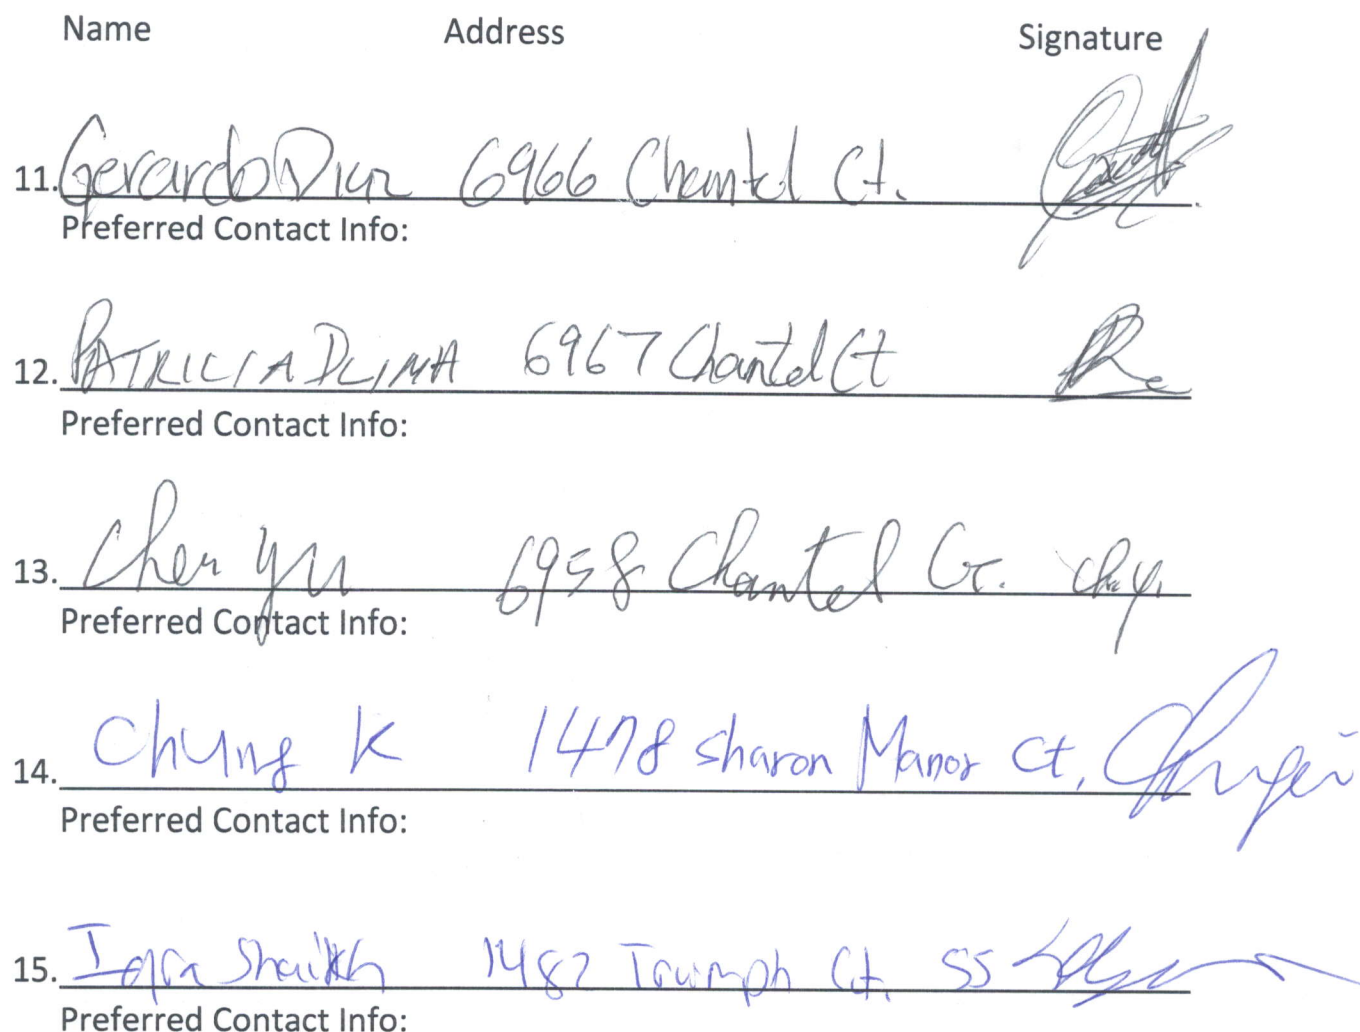 Name Address Signature
11. Gerardo Diaz 6966 Chantel Ct.
Preferred Contact Info:
12. PATRICIA DLIMA 6967 Chantel Ct
Preferred Contact Info:
13. Chen Yu 6958 Chantel Ct.
Preferred Contact Info:
14. Chung K 1478 Sharon Manor Ct,
Preferred Contact Info:
15. Iqra Shaikh 1487 Truimph Ct. SS
Preferred Contact Info: